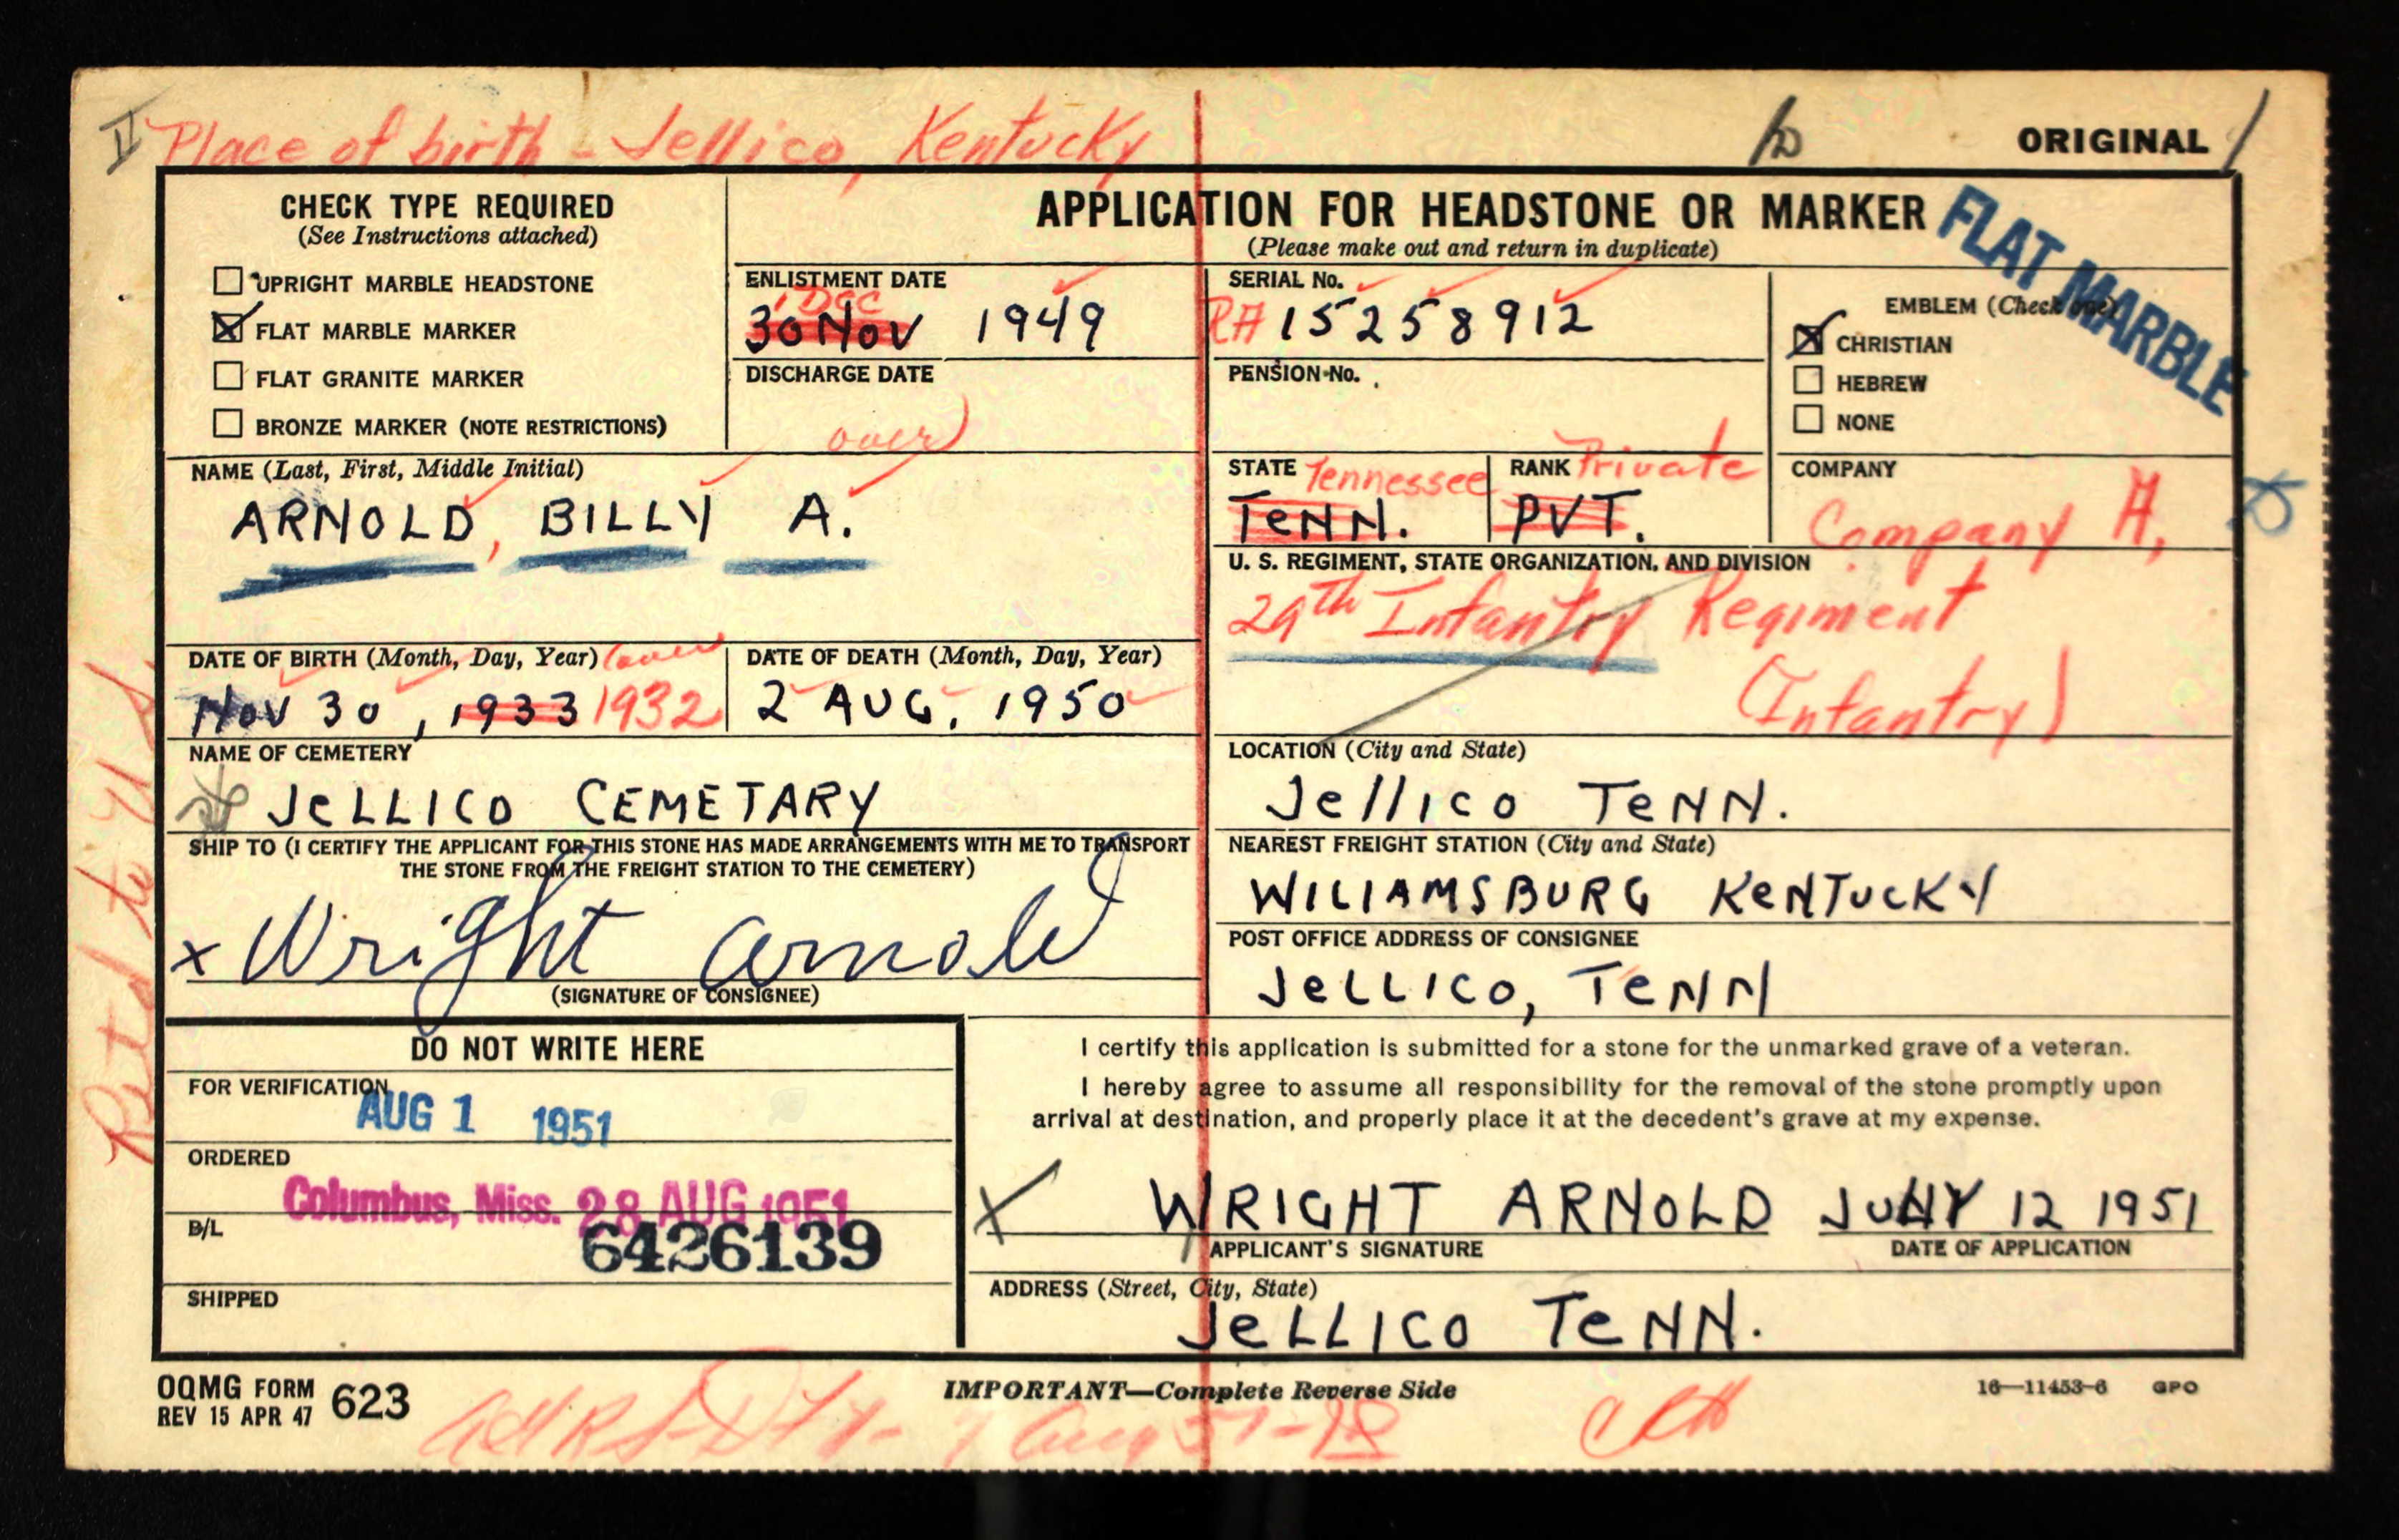 II Place of birth - Jellico, Kentucky
ORIGINAL
CHECK TYPE REQUIRED
(See Instructions attached)
UPRIGHT MARBLE HEADSTONE
FLAT MARBLE MARKER
FLAT GRANITE MARKER
BRONZE MARKER (NOTE RESTRICTIONS)
APPLICATION FOR HEADSTONE OR MARKER
(Please make out and return in duplicate)
FLAT MARBLE
ENLISTMENT DATE
1 Dec
30 Nov 1949
DISCHARGE DATE
over)
SERIAL No.
RA 15258912
PENSION No.
EMBLEM (Check one)
CHRISTIAN
HEBREW
NONE
NAME (Last, First, Middle Initial)
ARNOLD, BILLY A.
STATE Tennessee
TeNN.
RANK Private
PVT.
COMPANY
Company A,
U. S. REGIMENT, STATE ORGANIZATION, AND DIVISION
29th Infantry Regiment
(Infantry)
DATE OF BIRTH (Month, Day, Year) (over
Nov 30, 1933 1932
DATE OF DEATH (Month, Day, Year)
2 AUG. 1950
NAME OF CEMETERY
JeLLICO CEMETARY
LOCATION (City and State)
Jellico TeNN.
SHIP TO (I CERTIFY THE APPLICANT FOR THIS STONE HAS MADE ARRANGEMENTS WITH ME TO TRANSPORT
THE STONE FROM THE FREIGHT STATION TO THE CEMETERY)
x Wright Arnold
(SIGNATURE OF CONSIGNEE)
NEAREST FREIGHT STATION (City and State)
WILIAMSBURG KeNTUCKY
POST OFFICE ADDRESS OF CONSIGNEE
JeLLICO, TeNN
Retd to U S
DO NOT WRITE HERE
FOR VERIFICATION
AUG 1 1951
ORDERED
Columbus, Miss. 28 AUG 1951
B/L
6426139
SHIPPED
I certify this application is submitted for a stone for the unmarked grave of a veteran.
I hereby agree to assume all responsibility for the removal of the stone promptly upon
arrival at destination, and properly place it at the decedent's grave at my expense.
X WRIGHT ARNOLD JULY 12 1951
APPLICANT'S SIGNATURE
DATE OF APPLICATION
ADDRESS (Street, City, State)
JeLLICO TeNN.
OQMG FORM 623
REV 15 APR 47
IMPORTANT—Complete Reverse Side
16—11453-6 GPO